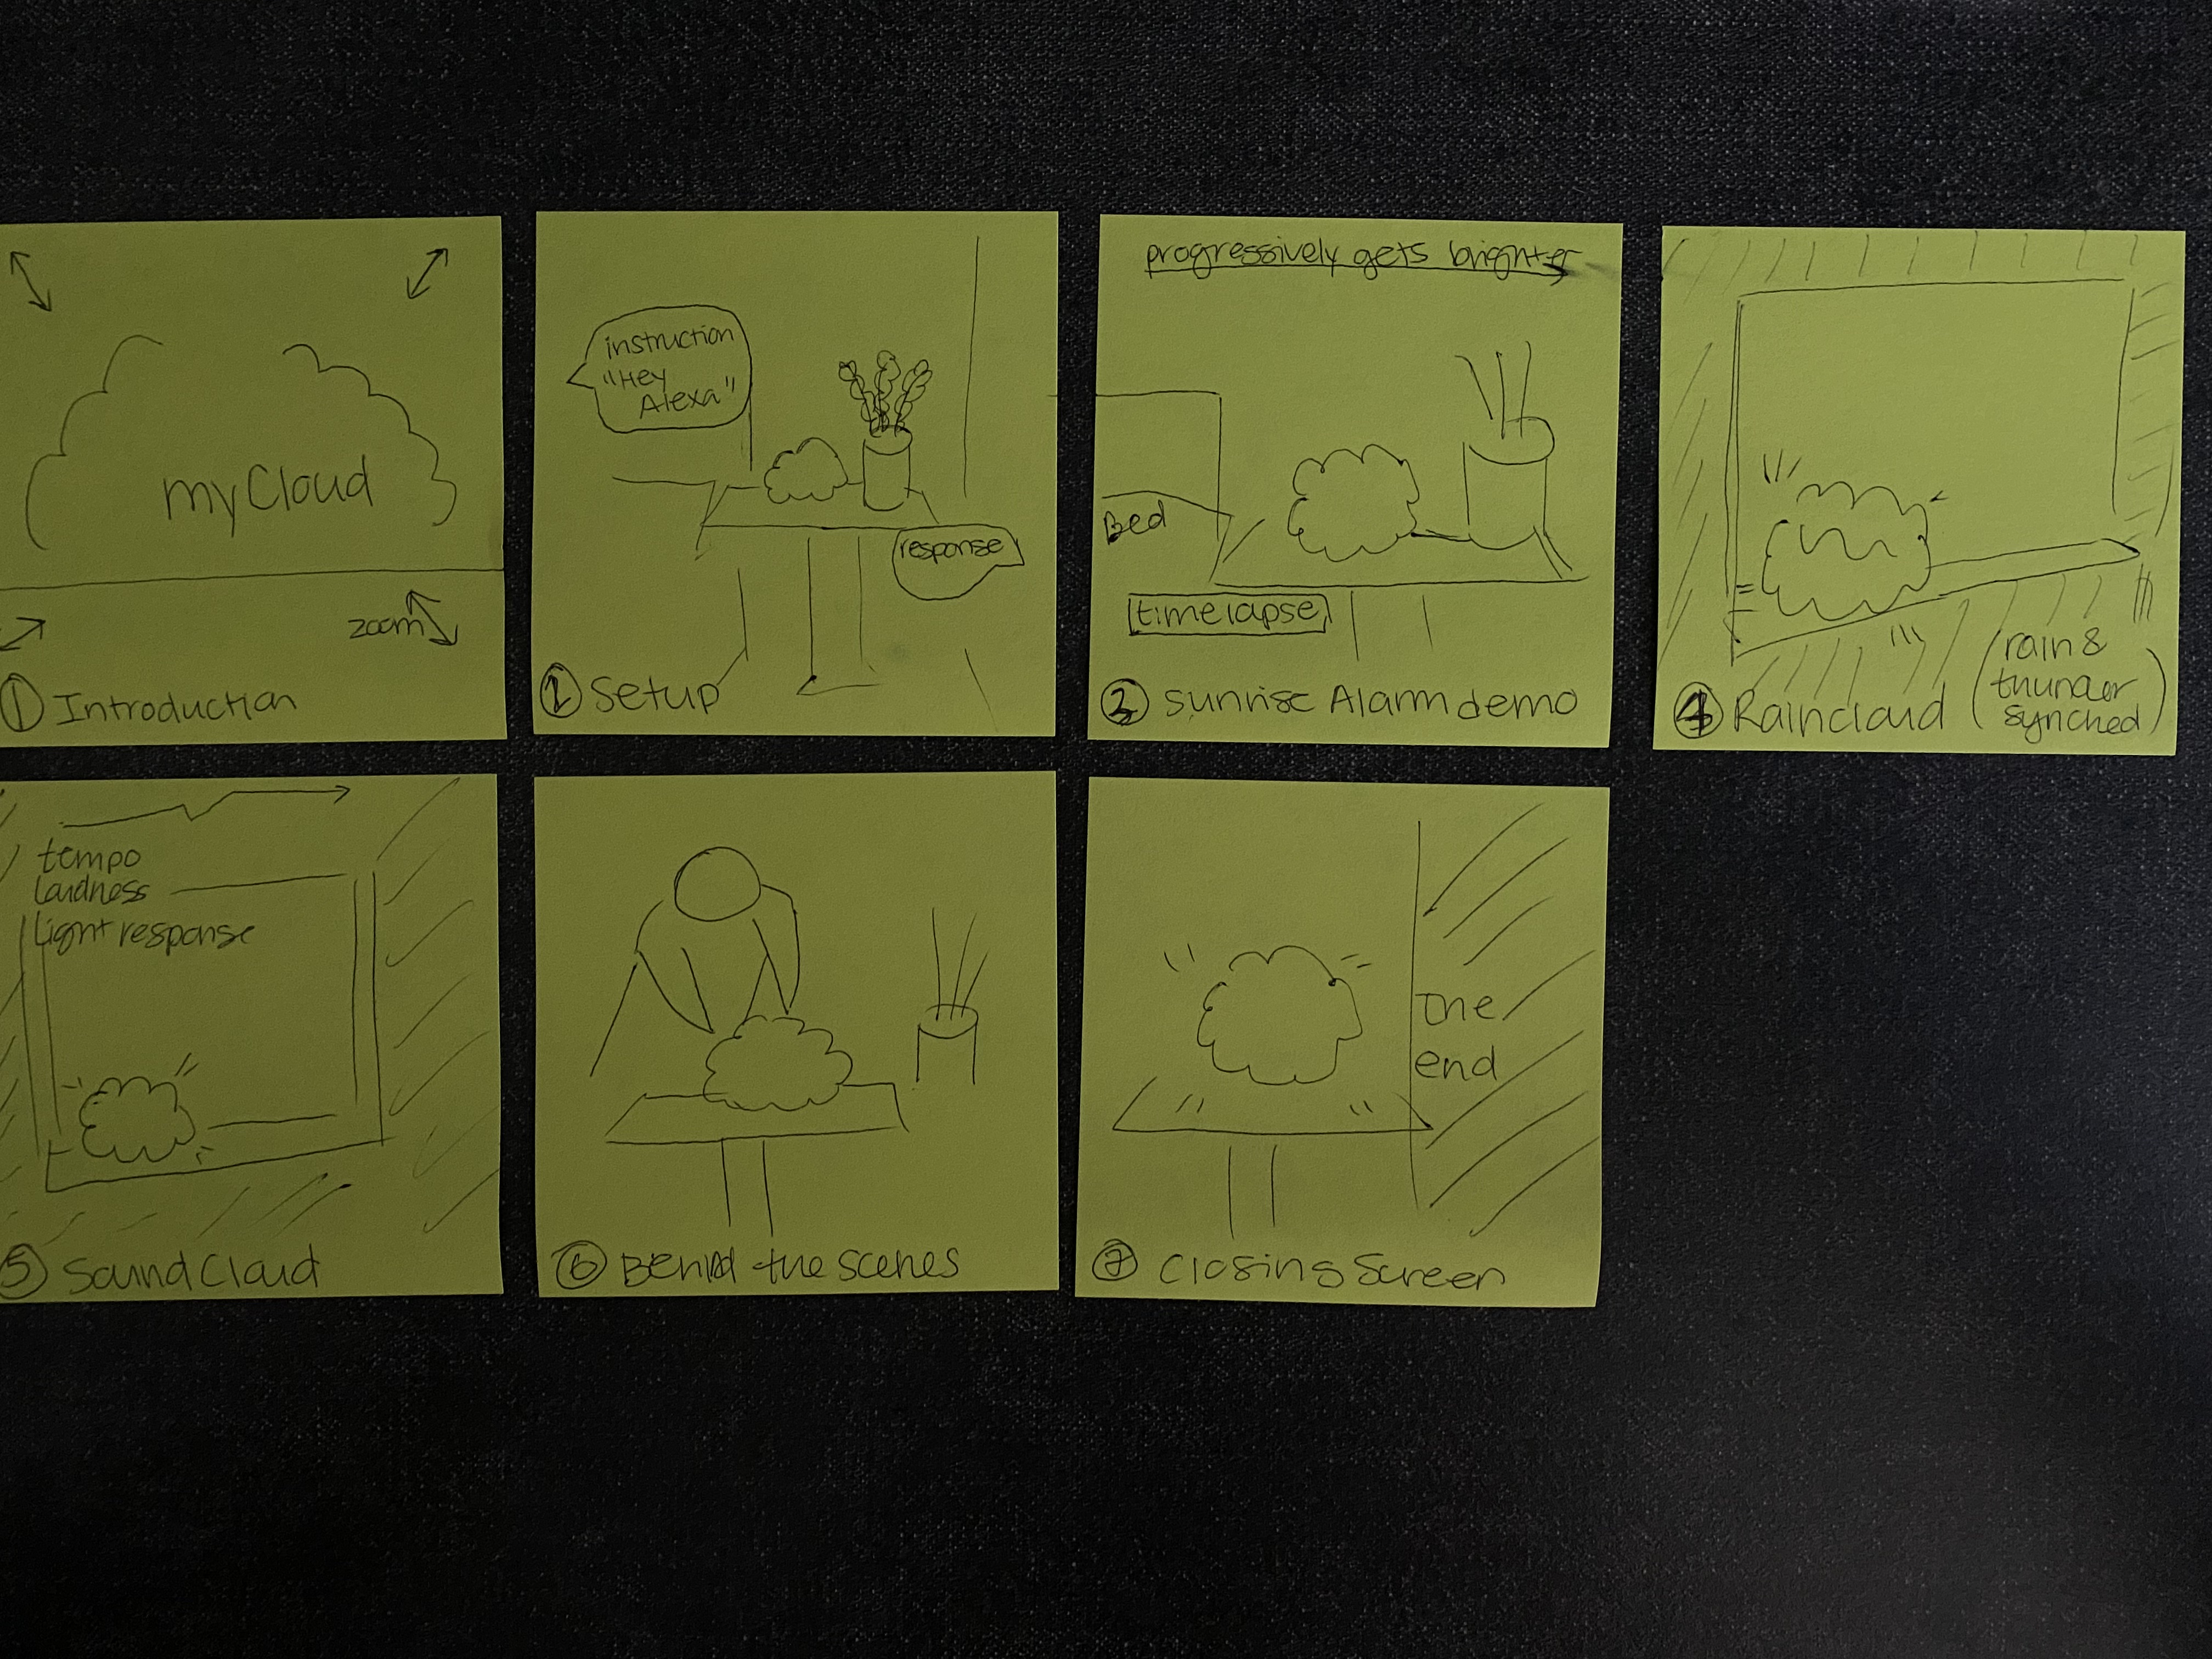 myCloud
zoom
① Introduction
instruction
"Hey
Alexa"
response
② Setup
progressively gets brighter
Bed
timelapse
③ Sunrise Alarm demo
④ Raincloud (rain &
thunder
synched)
tempo
loudness
light response
⑤ Sound Cloud
⑥ Behind the scenes
The
end
⑦ Closing Screen